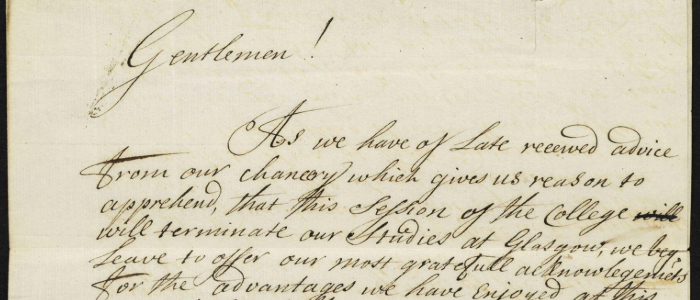 Gentlemen!
As we have of Late receeved advice
from our chancery which gives us reason to
apprehend, that this Session of the College will
will terminate our Studies at Glasgow; we beg
Leave to offer our most gratefull acknowlegements
for the advantages we have Enjoyed at this